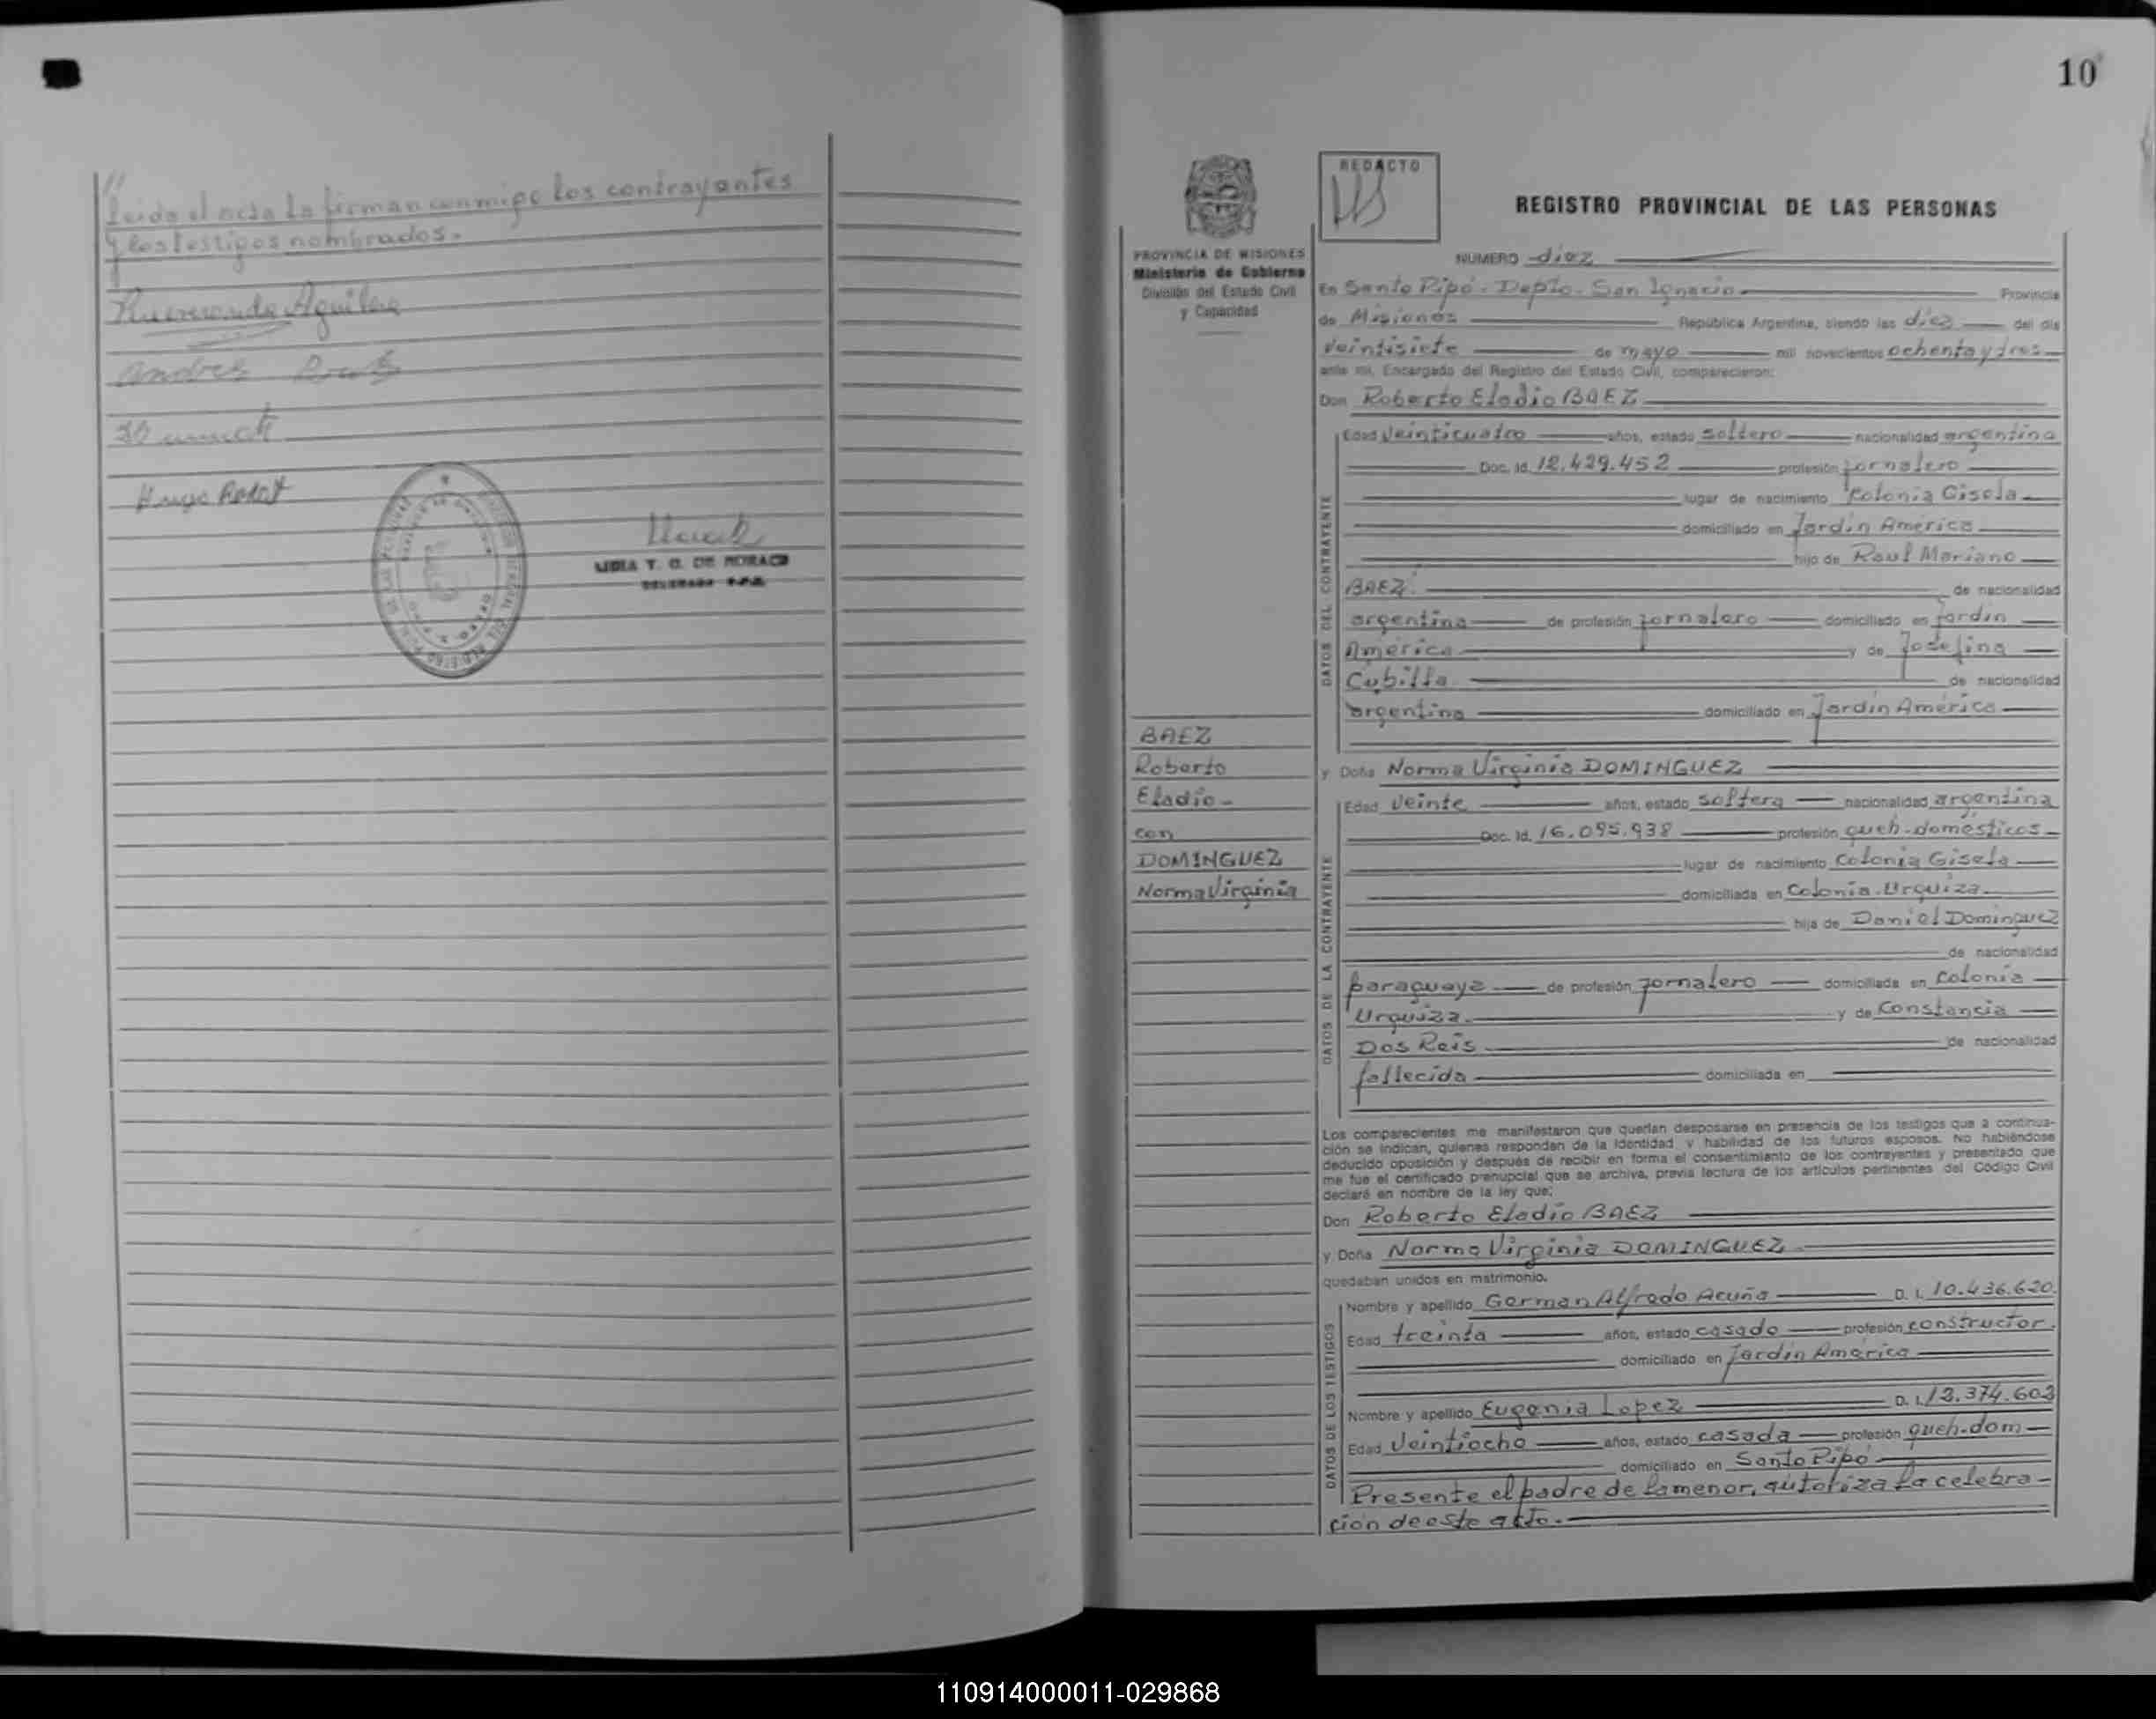 //
Leida el acta la firman conmigo los contrayentes
y los testigos nombrados.-
Aguilera
Andrés
Hugo
LIDIA T. G. DE MORACH
10
REDACTO
REGISTRO PROVINCIAL DE LAS PERSONAS
PROVINCIA DE MISIONES
Ministerio de Gobierno
División del Estado Civil
y Capacidad
NUMERO diez
En Santo Pipó - Depto - San Ignacio. Provincia
de Misiones República Argentina, siendo las diez del día
veintisiete de mayo mil novecientos ochenta y tres
ante mi, Encargado del Registro del Estado Civil, comparecieron:
Don Roberto Eladio BAEZ
DATOS DEL CONTRAYENTE
Edad veinticuatro años, estado soltero nacionalidad argentina
Doc. Id. 12.429.452 profesión jornalero
lugar de nacimiento Colonia Gisela
domiciliado en Jardín América
hijo de Raul Mariano
BAEZ. de nacionalidad
argentina de profesión jornalero domiciliado en Jardín
América y de Josefina
Cubilla de nacionalidad
argentina domiciliado en Jardín América
BAEZ
Roberto
Eladio -
con
DOMINGUEZ
Norma Virginia
y Doña Norma Virginia DOMINGUEZ
DATOS DE LA CONTRAYENTE
Edad veinte años, estado soltera nacionalidad argentina
Doc. Id. 16.095.938 profesión queh-domésticos
lugar de nacimiento Colonia Gisela
domiciliada en Colonia Urquiza
hija de Daniel Dominguez
de nacionalidad
paraguaya de profesión jornalero domiciliada en Colonia
Urquiza. y de Constancia
Dos Reis de nacionalidad
fallecida domiciliada en
Los comparecientes me manifestaron que querían desposarse en presencia de los testigos que a continua-
ción se indican, quienes responden de la identidad y habilidad de los futuros esposos. No habiéndose
deducido oposición y después de recibir en forma el consentimiento de los contrayentes y presentado que
me fue el certificado prenupcial que se archiva, previa lectura de los artículos pertinentes del Código Civil
declaré en nombre de la ley que:
Don Roberto Eladio BAEZ
y Doña Norma Virginia DOMINGUEZ
quedaban unidos en matrimonio.
DATOS DE LOS TESTIGOS
Nombre y apellido German Alfredo Acuña D. I. 10.436.620
Edad treinta años, estado casado profesión constructor.
domiciliado en Jardín América
Nombre y apellido Eugenia Lopez D. I. 12.374.602
Edad veintiocho años, estado casada profesión queh-dom
domiciliado en Santo Pipó
Presente el padre de la menor, autoriza la celebra-
ción de este acto.-
110914000011-029868